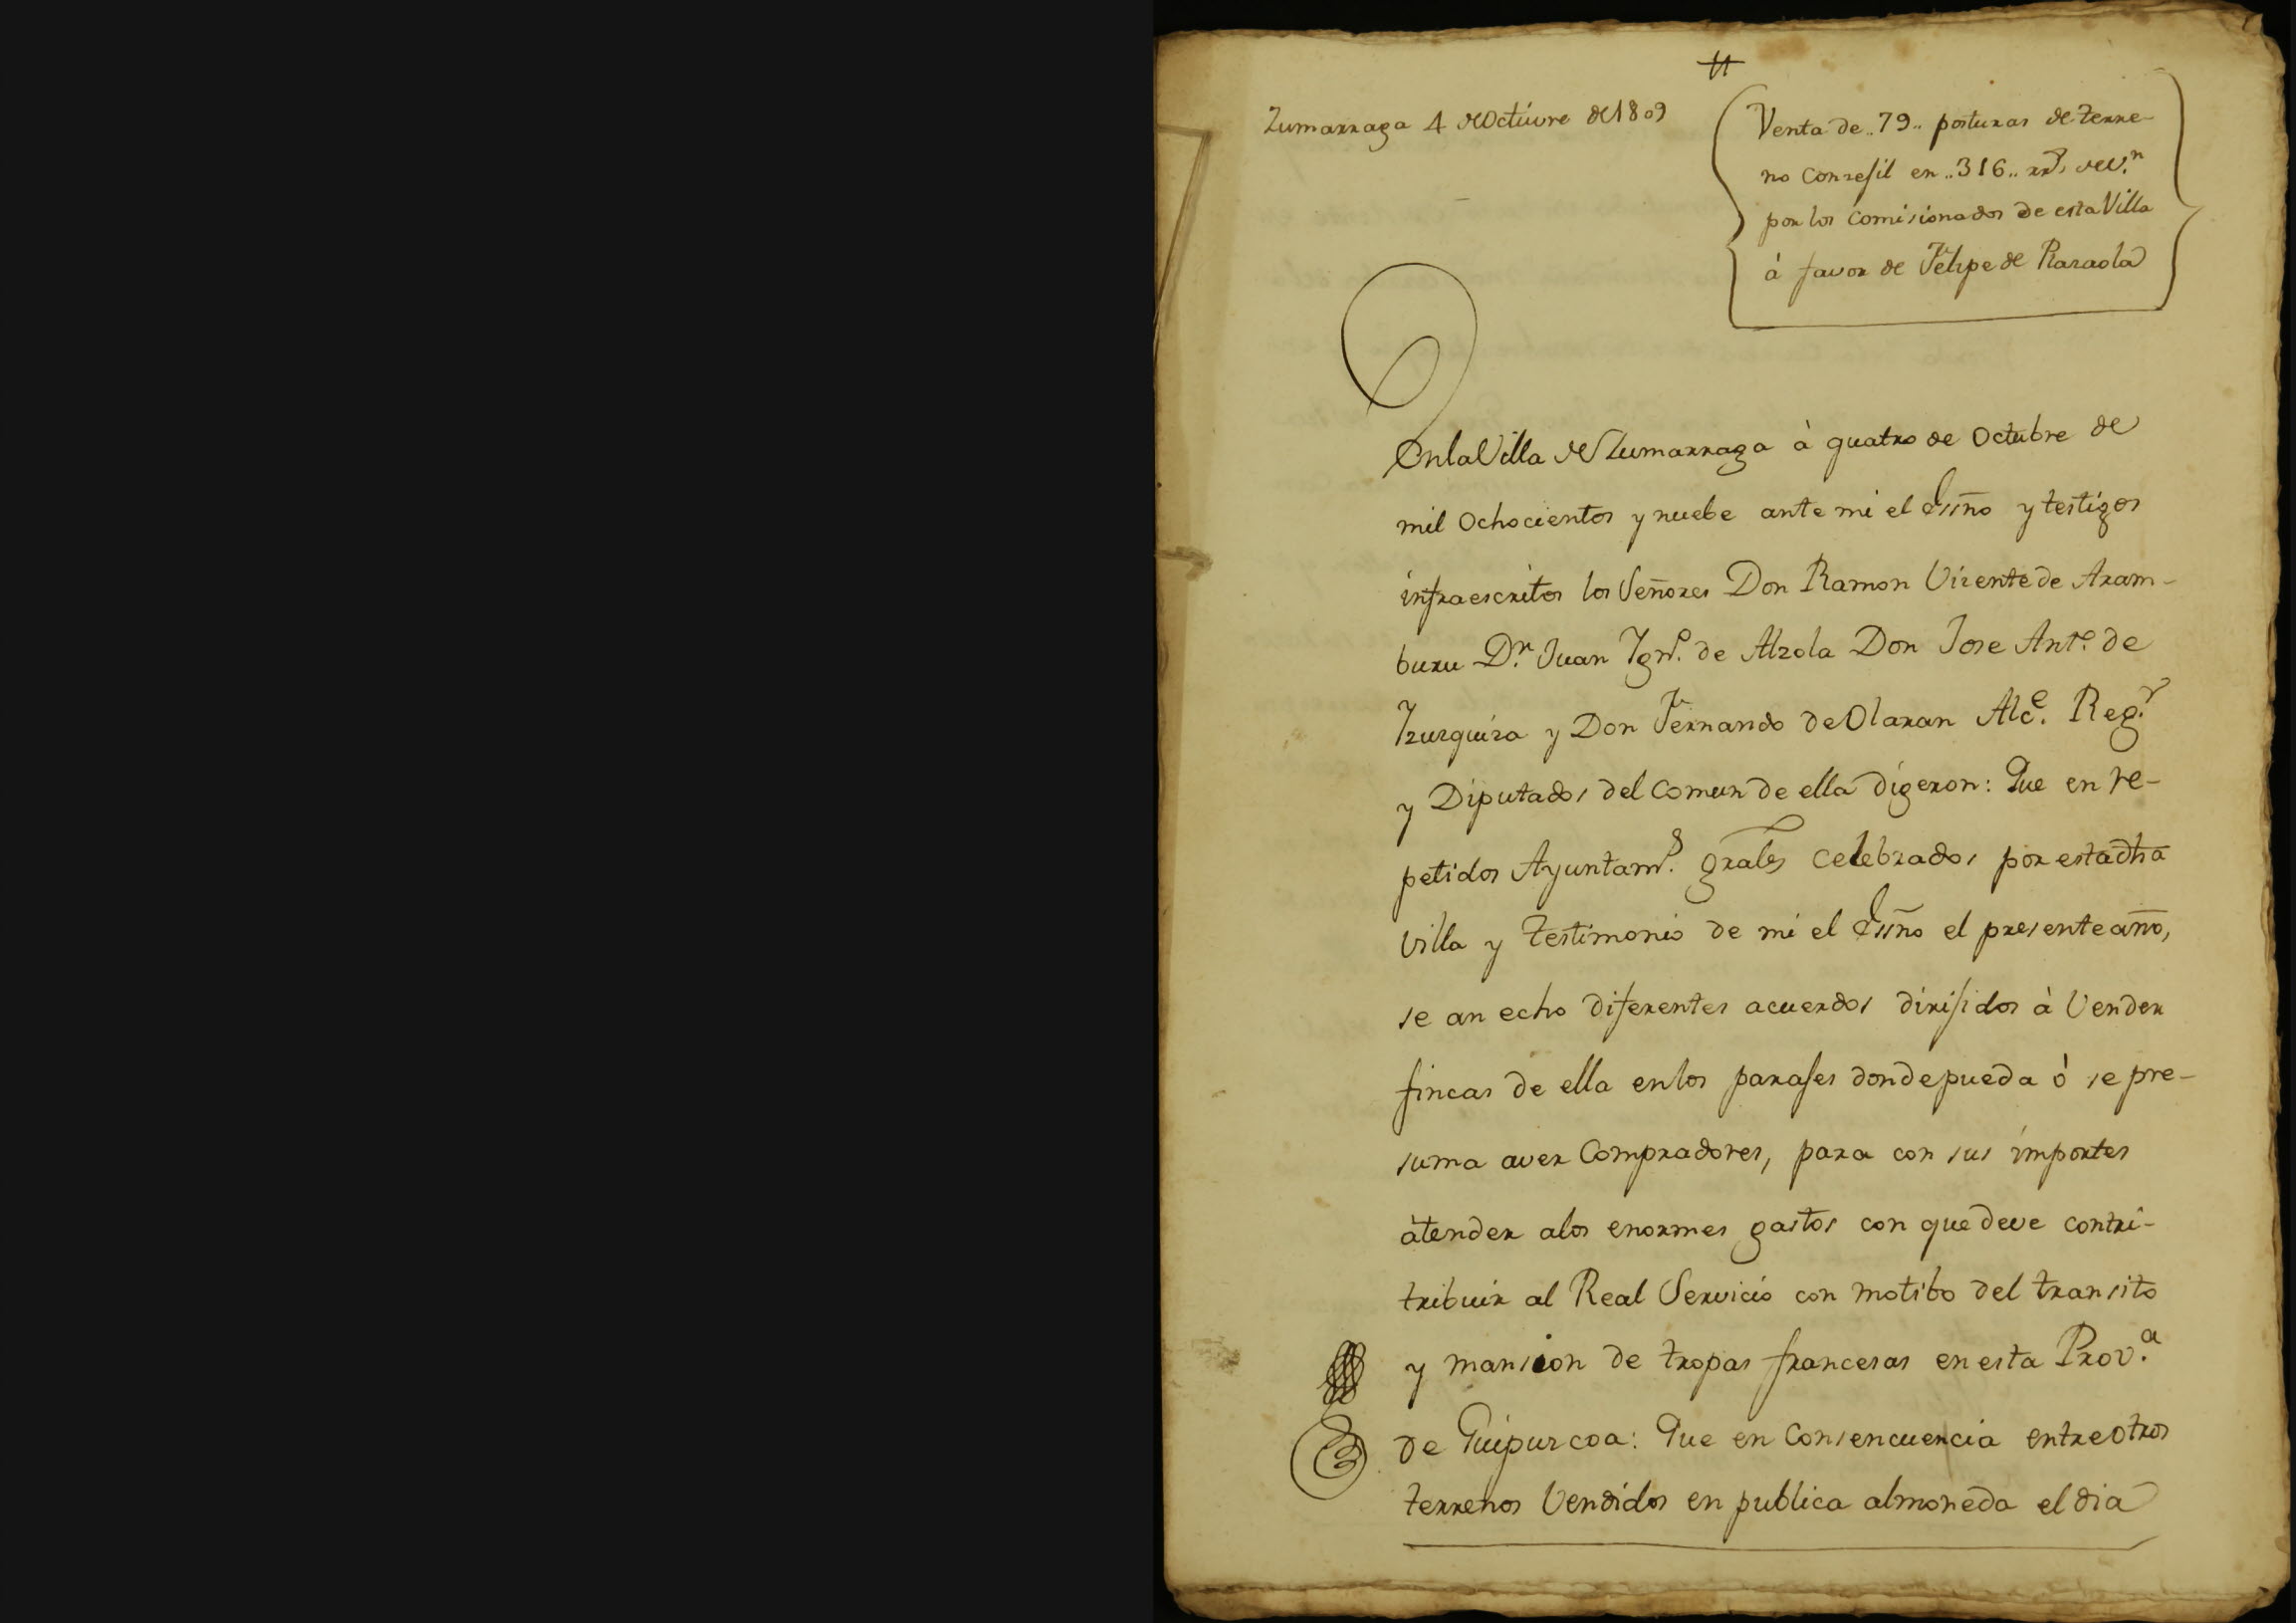 Zumarraga 4 de Octuvre de 1809
Venta de..79.. posturas de terre-
no conzejil en..316.. rrs. de v.n
por los comisionados de esta Villa
à favor de Felipe de
En la Villa de Zumarraga à quatro de Octubre de
mil Ochocientos y nuebe ante mi el Essño y testigos
infraescritos los Señores Don Ramon Vizente de Aram-
buru D.n Juan Ign.o de Alzola Don Jose Ant.o de
Yzurquiza y Don Fernando de Olaran Alc.e Reg.r
y Diputados del Comun de ella digeron: Que en re-
petidos Ayuntam.s grales celebrados por esta dha
Villa y testimonio de mi el Essño el presente año,
se an echo diferentes acuerdos dirijidos à Vender
fincas de ella en los parajes donde pueda ò se pre-
suma aver Compradores, para con sus importes
àtender alos enormes gastos con que deve contri-
tribuir al Real Servicio con motibo del transito
y mansion de tropas francesas en esta Prov.a
de Guipuzcoa: Que en Consencuencia entre otros
terrenos Vendidos en publica almoneda el dia